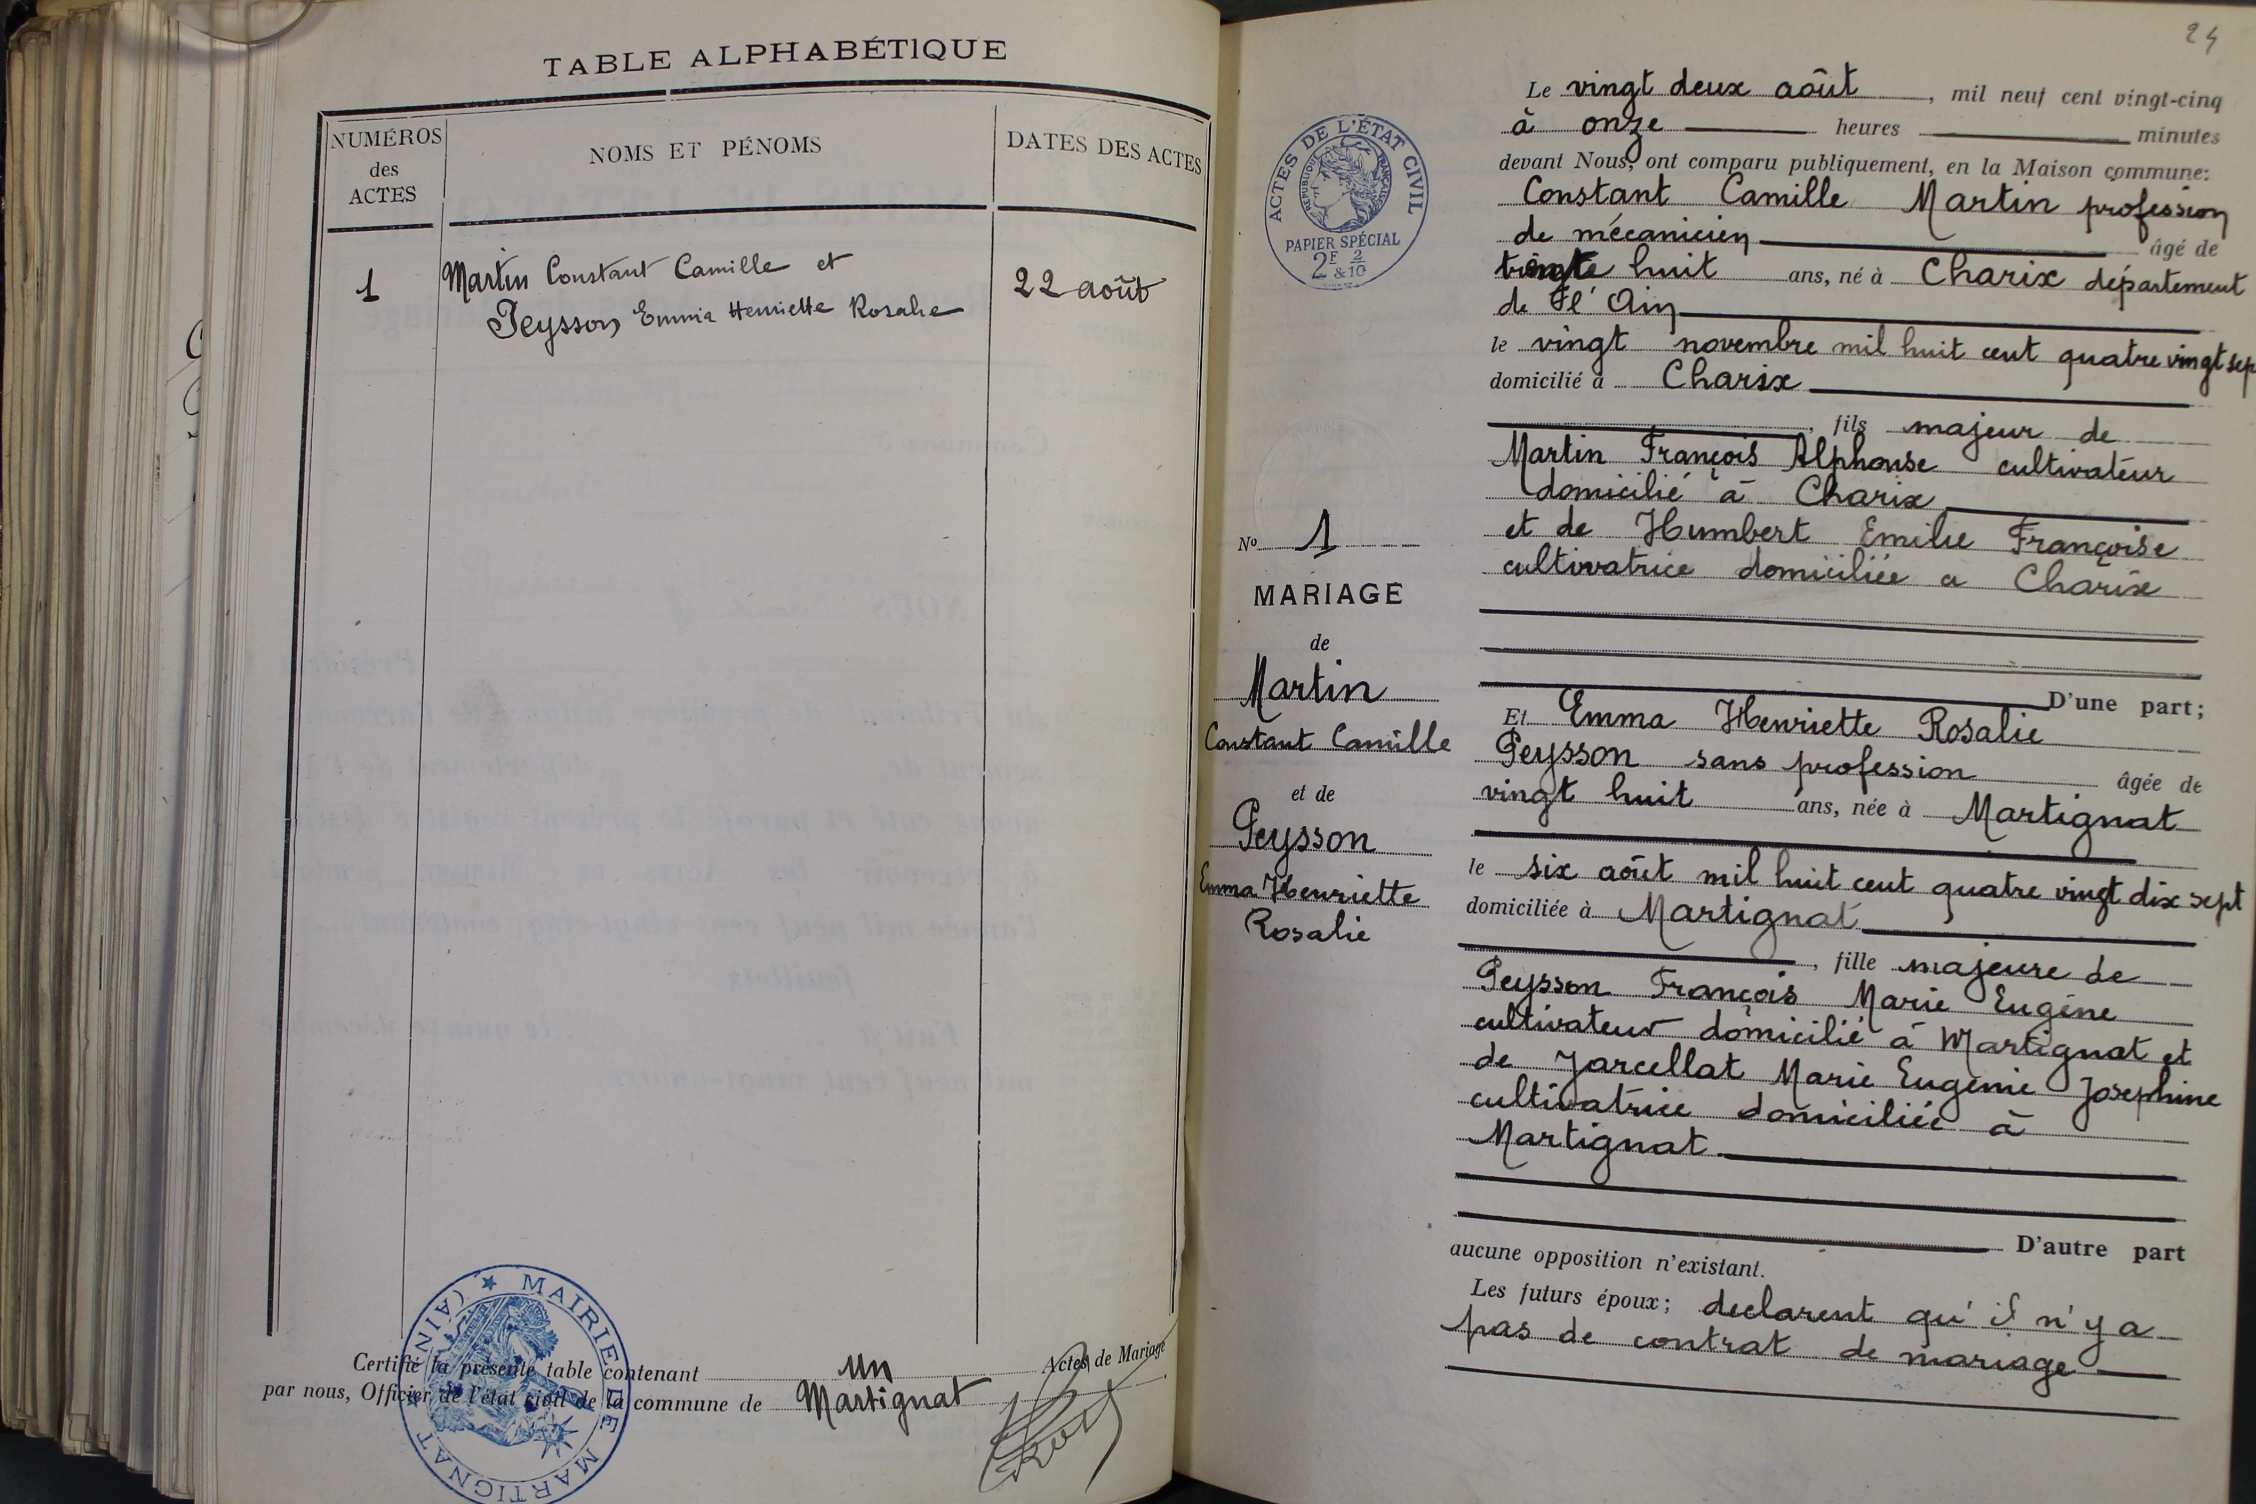 TABLE ALPHABÉTIQUE
NUMÉROS
des
ACTES
NOMS ET PÉNOMS
DATES DES ACTES
1
Martin Constant Camille et
Peysson Emma Henriette Rosalie
22 août
Certifié la présente table contenant un Actes de Mariage
par nous, Officier de l'état civil de la commune de Martignat
MAIRIE DE MARTIGNAT (AIN)
24
ACTES DE L'ÉTAT CIVIL
RÉPUBLIQUE FRANÇAISE
PAPIER SPÉCIAL
2F 2/10
&
Nº 1
MARIAGE
de
Martin
Constant Camille
et de
Peysson
Emma Henriette
Rosalie
Le vingt deux août, mil neuf cent vingt-cinq
à onze heures minutes
devant Nous, ont comparu publiquement, en la Maison commune:
Constant Camille Martin profession
de mécanicien âgé de
huit ans, né à Charix département
de l'Ain
le vingt novembre mil huit cent quatre vingt sep
domicilié à Charix
, fils majeur de
Martin François Alphonse cultivateur
domicilié à Charix
et de Humbert Emilie Françoise
cultivatrice domiciliée a Charix
D'une part;
Et Emma Henriette Rosalie
Peysson sans profession âgée de
vingt huit ans, née à Martignat
le six août mil huit cent quatre vingt dix sept
domiciliée à Martignat
, fille majeure de
Peysson François Marie Eugène
cultivateur domicilié à Martignat et
de Jarcellat Marie Eugenie Josephine
cultivatrice domiciliée à
Martignat
D'autre part
aucune opposition n'existant.
Les futurs époux; declarent qu'il n'y a
pas de contrat de mariage